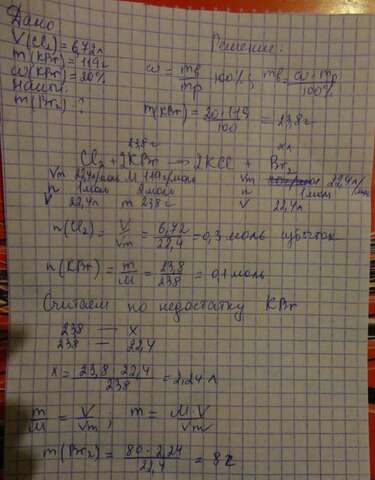 Дано
V(Cl₂)=6,72л
m(KBr)=119г
ω(KBr)=20%
Найти:
m(Br₂) - ?
Решение:
ω = mв/mр · 100% ; mв = ω·mр/100%
m(KBr) = 20·119/100 = 23,8г
23,8г xл
Cl₂ + 2KBr → 2KCl + Br₂
Vm 22,4л/моль M 119г/моль Vm 22,4л/моль
n 1моль 2моль n 1моль
V 22,4л m 238г V 22,4л
n(Cl₂) = V/Vm = 6,72/22,4 = 0,3 моль избыток
n(KBr) = m/M = 23,8/238 = 0,1 моль
Считаем по недостатку KBr
23,8 — x
238 — 22,4
x = 23,8·22,4/238 = 2,24 л
m/M = V/Vm ; m = M·V/Vm
m(Br₂) = 80·2,24/22,4 = 8г